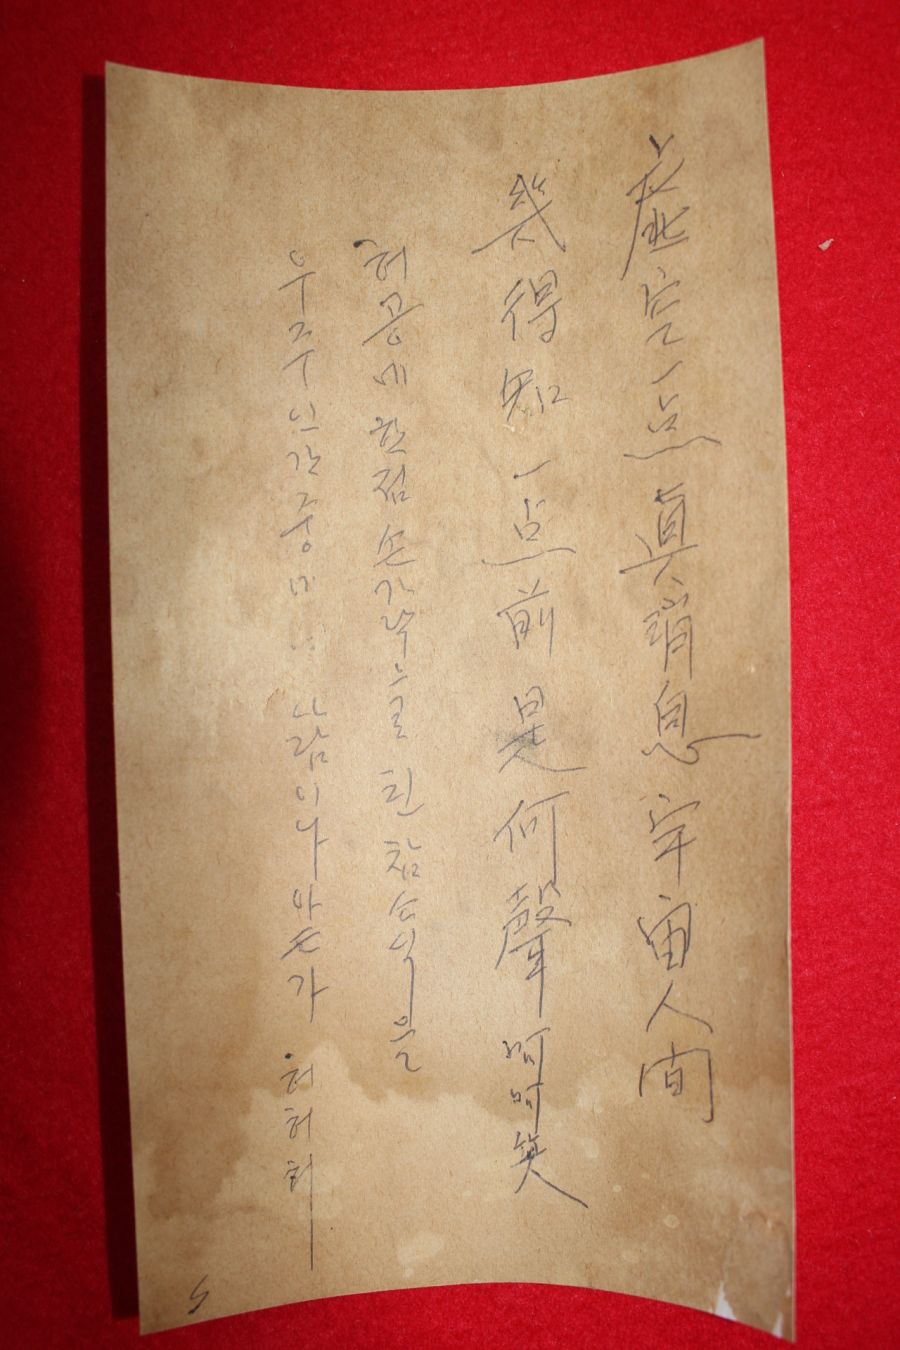 虛空一点眞消息宇宙人间
幾得知一点前是何聲呵呵笑
허공에 한점 손가락으로 틘 참소식을
우주인간중에 사람이나 아는가 허허허